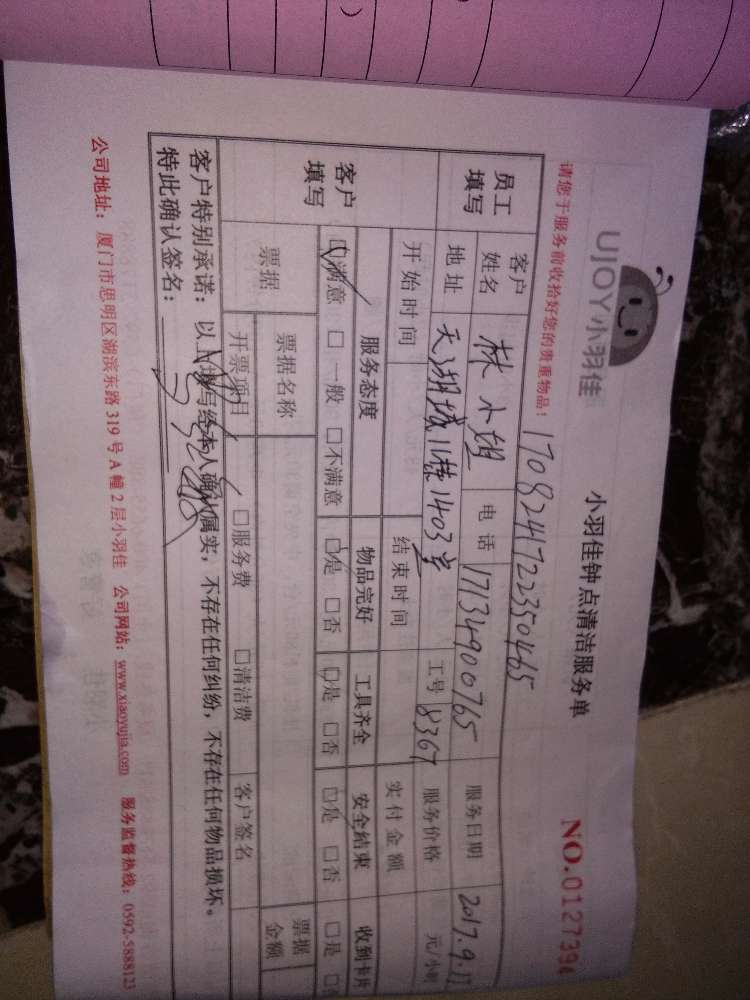 UJOY小羽佳
小羽佳钟点清洁服务单
NO.0127394
请您于服务前收拾好您的贵重物品!
170824722350465
员工填写
客户姓名 林小姐 电话 17134900765 服务日期 2017.9.17
地址 天湖城11栋1403室 工号 8367 服务价格 元/小时
开始时间 结束时间 实付金额
客户填写
服务态度 物品完好 工具齐全 安全结束 收到卡片
☑满意 □一般 □不满意 ☑是 □否 ☑是 □否 ☑是 □否 □是 □否
票据 票据名称 票据金额
开票项目 □服务费 □清洁费 客户签名
客户特别承诺:以上填写经本人确认属实,不存在任何纠纷,不存在任何物品损坏。
特此确认签名:
公司地址:厦门市思明区湖滨东路319号A幢2层小羽佳 公司网站:www.xiaoyujia.com 服务监督热线:0592-5888123